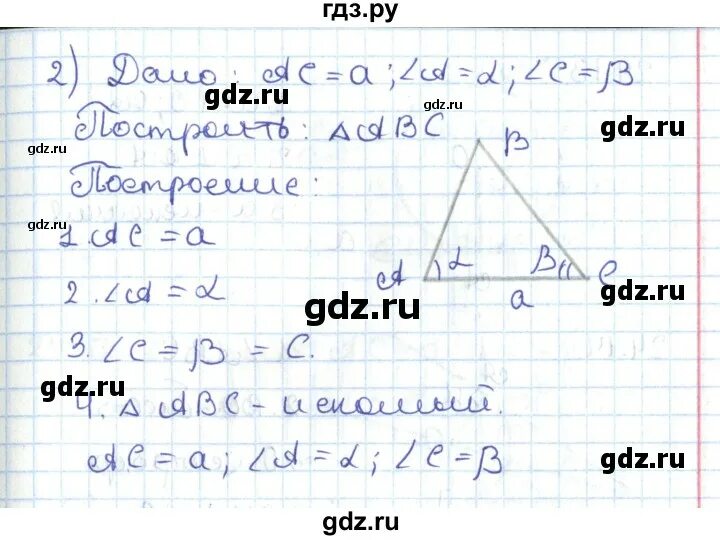 гдз.ру
2) Дано: AC = a; ∠A = α; ∠C = β
gdz.ru
gdz.ru
Построить: △ABC
gdz.ru
gdz.ru
B
Построение:
gdz.ru
1. AC = a
A α β C
gdz.ru
a
2. ∠A = α
gdz.ru
3. ∠C = β = C.
gdz.ru
4. △ABC - искомый.
AC = a; ∠A = α; ∠C = β
gdz.ru
gdz.ru